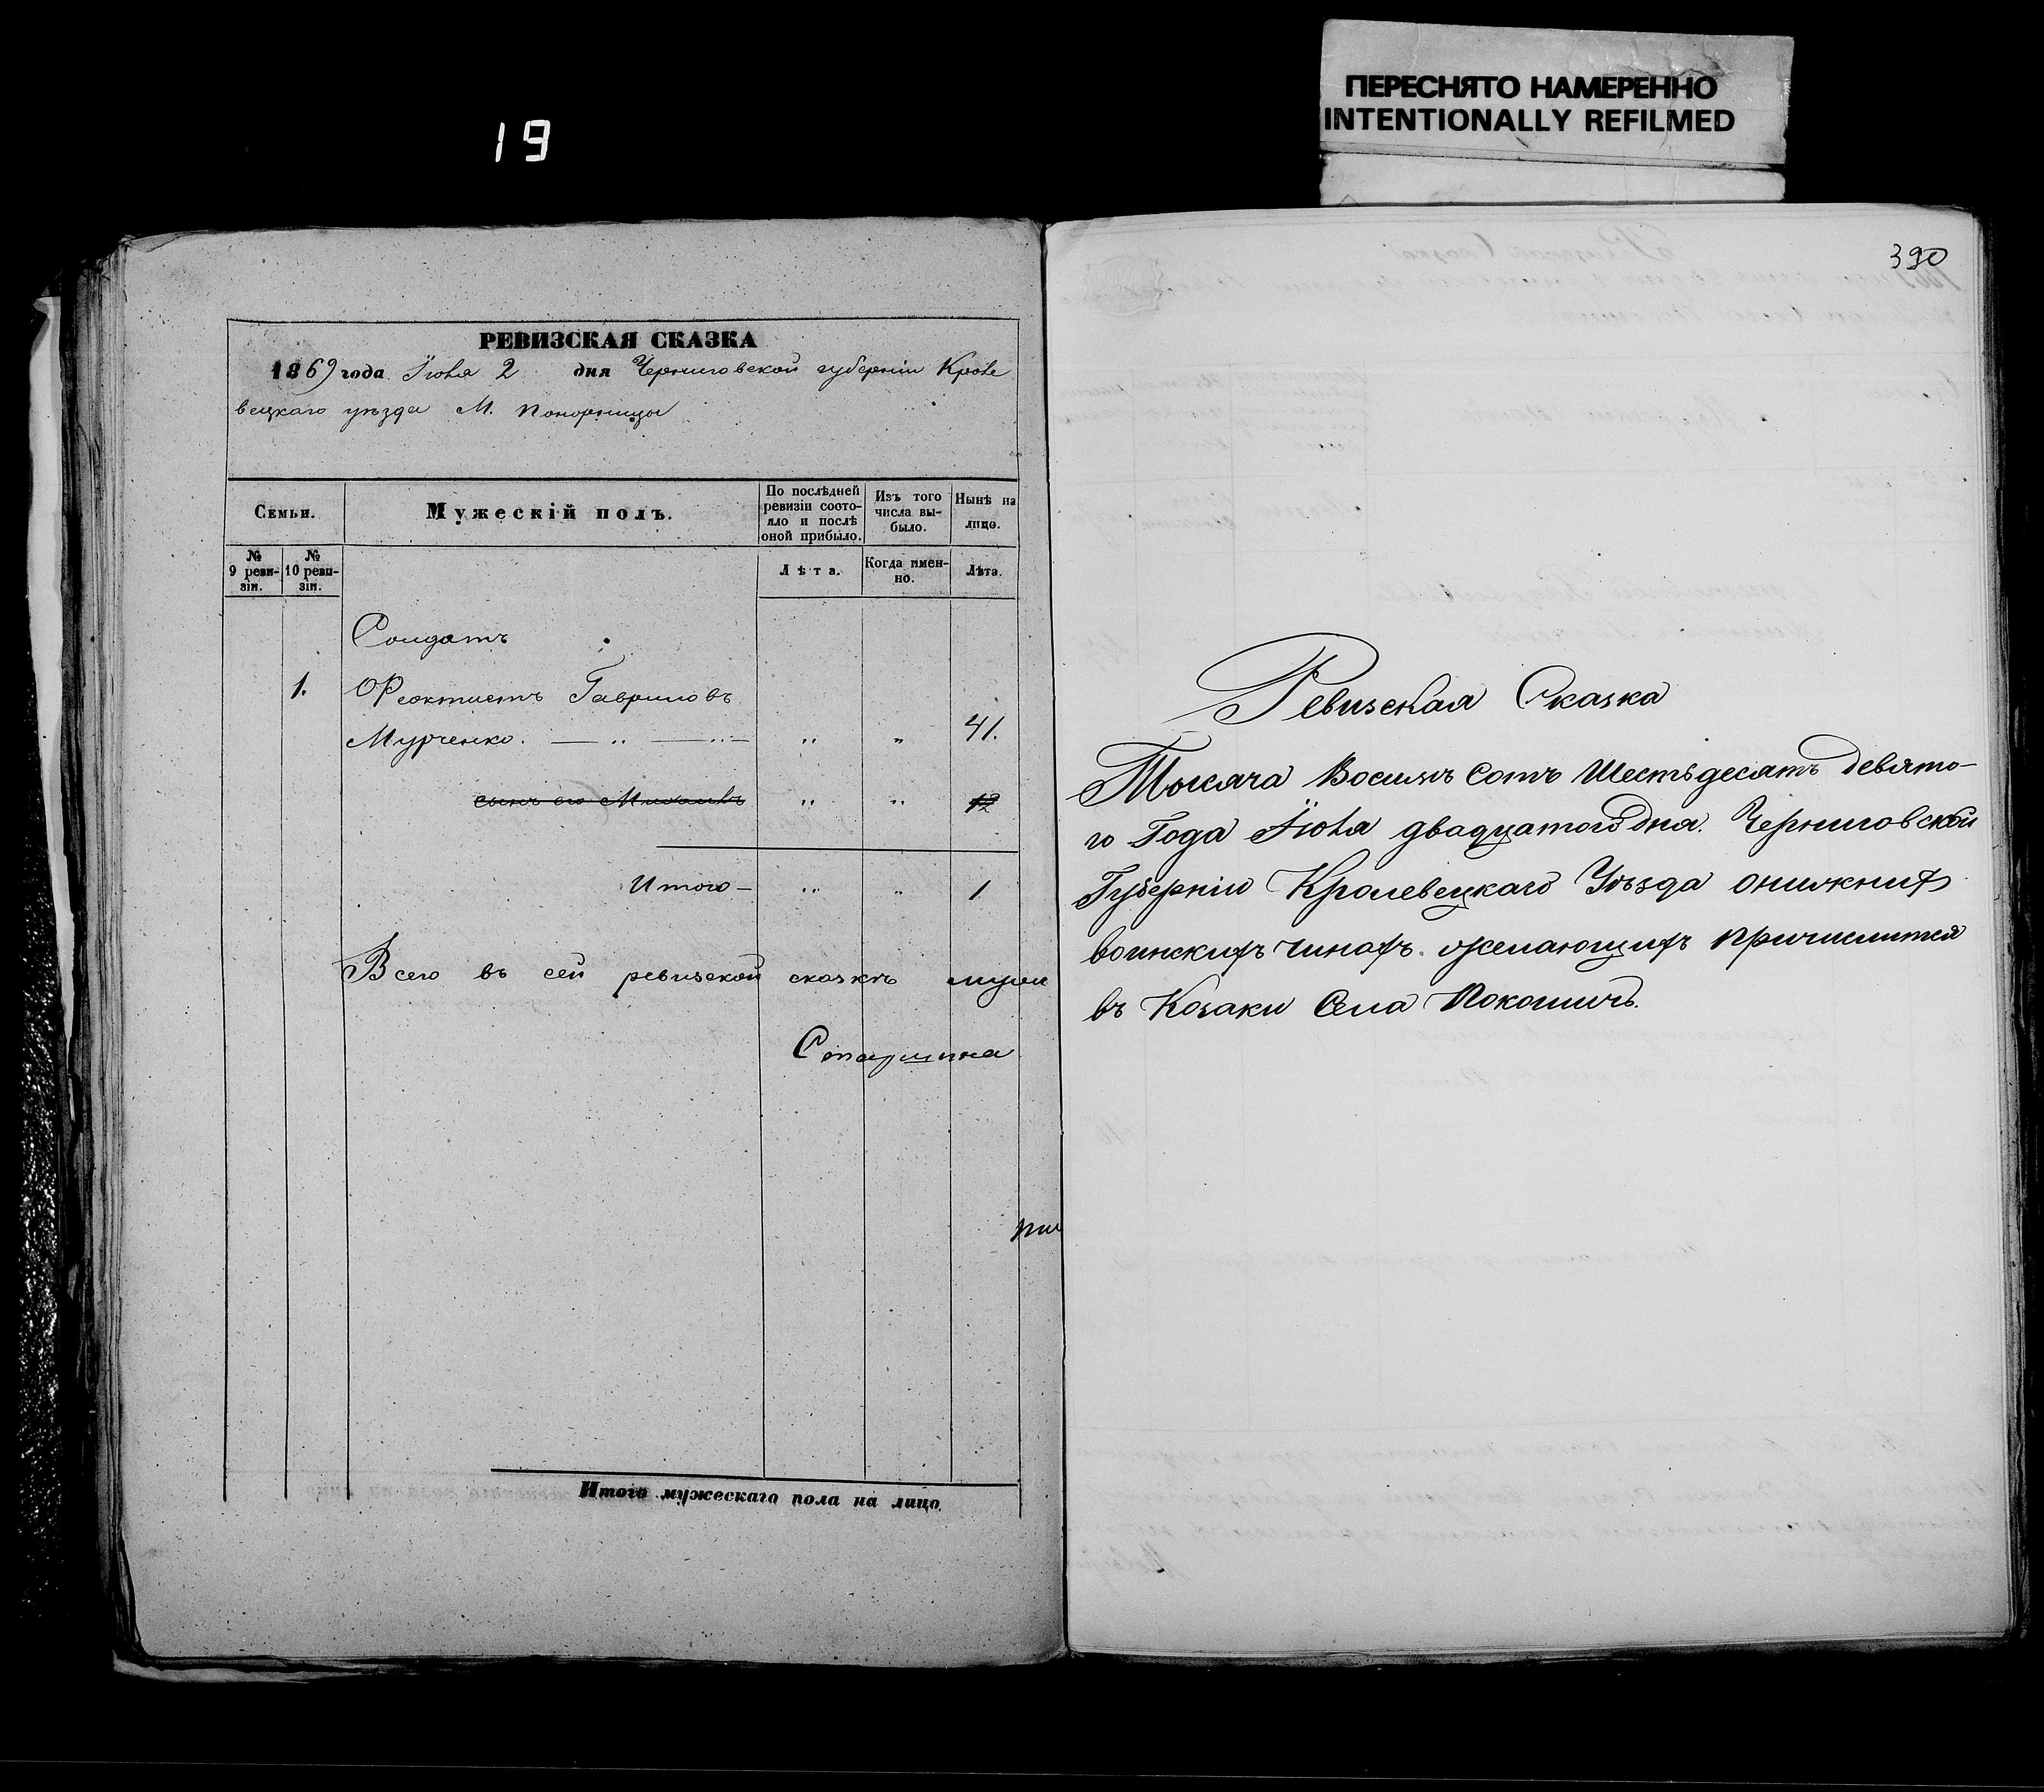 19
ПЕРЕСНЯТО НАМЕРЕННО
INTENTIONALLY REFILMED
РЕВИЗСКАЯ СКАЗКА
1869 года Іюня 2 дня Черниговской губерніи Кроле
вецкаго уѣзда М. Понорницы
Семьи.
Мужескій полъ.
По послѣдней
ревизіи состо-
яло и послѣ
оной прибыло.
Изъ того
числа вы-
было.
Нынѣ на
лицо.
№
9 реви-
зіи.
№
10 реви-
зіи.
Лѣта.
Когда имен-
но.
Лѣта.
Солдатъ
1. Ѳеоктистъ Гавриловъ
Мурченко. — „ — „ „ „ 41.
сынъ его Михаилъ „ „ 12
Итого — „ „ 1
Всего въ сей ревизской сказкѣ
Старшина
Итого мужескаго пола на лицо
390
Ревизская Сказка
Тысяча Восимъ Сотъ Шестьдесятъ девято-
го Года Іюня двадцатого дня. Черниговской
Губерніи Кролевецкаго Уѣзда онижних
воинскихъ чинахъ. желающихъ причислится
въ Козаки Села Покошичъ.